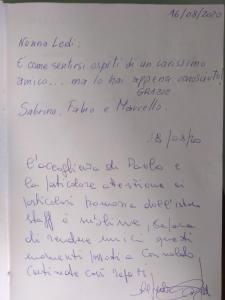 16/08/2020
Nonna Ledi:
È come sentirsi ospiti di un carissimo
amico... ma lo hai appena conosciuto!
GRAZIE
Sabrina, Fabio e Marcello.
18/08/20
L'accoglienza di Paolo e
la particolare attenzione ai
particolari promossa dall'intero
staff è sublime,
di rendere unici questi
momenti passati a
Continuate così